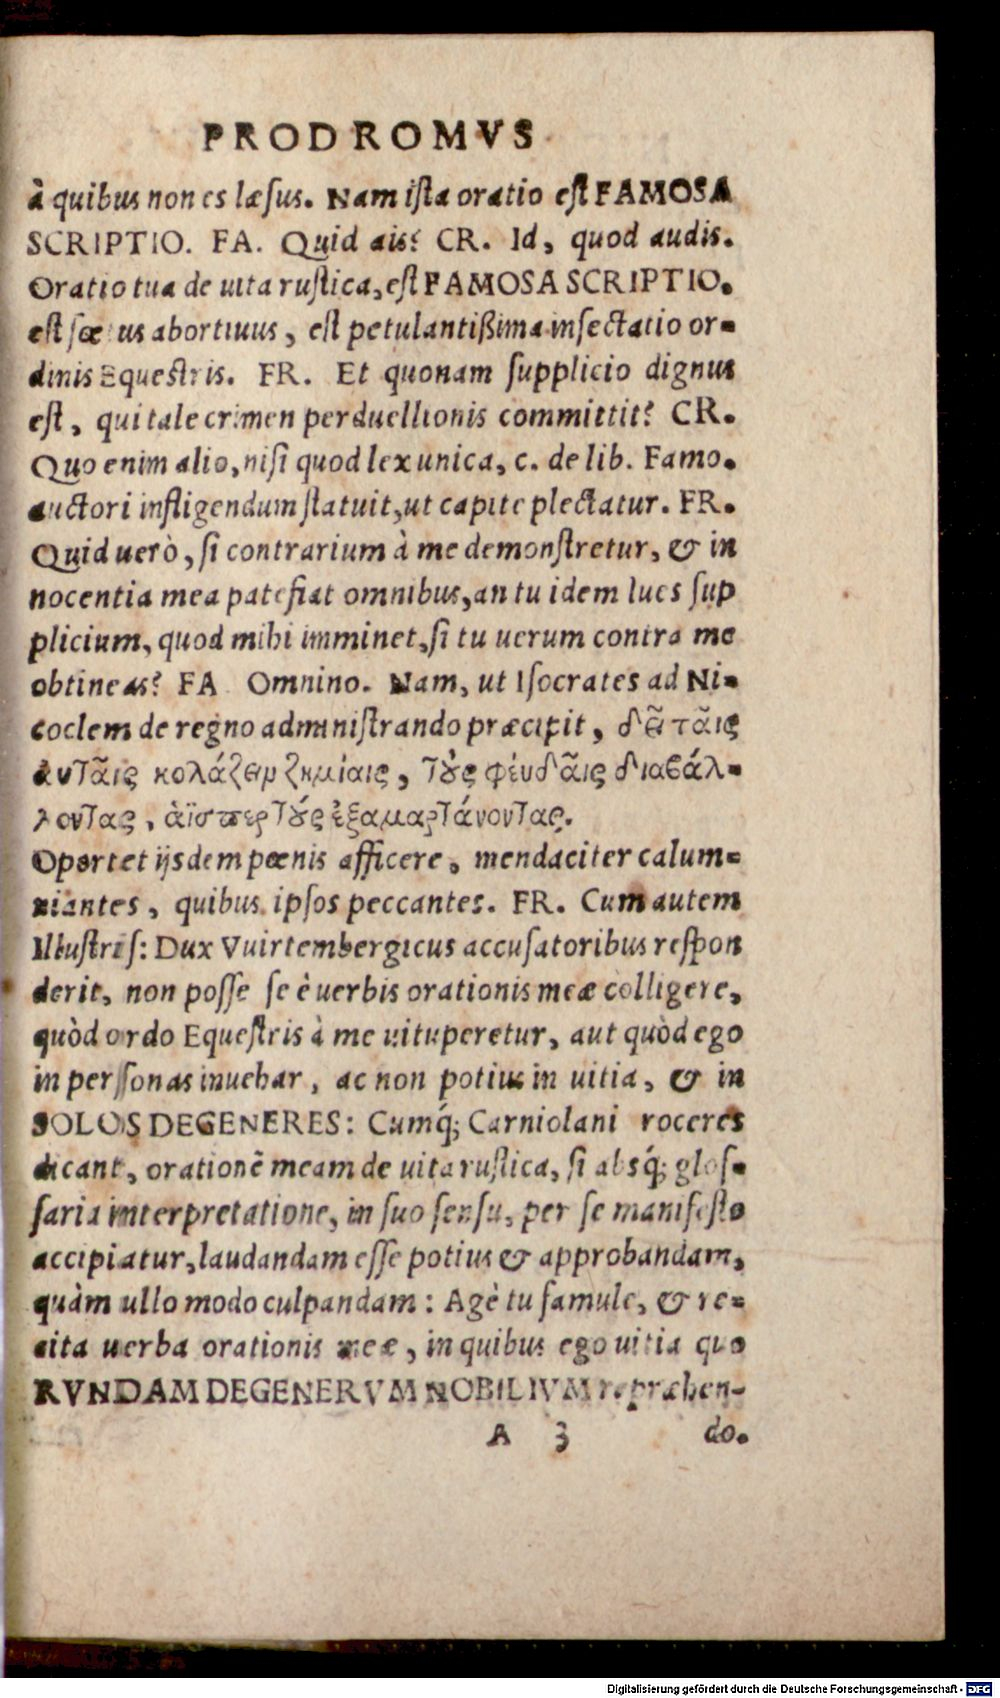 PRODROMVS
à quibus non es læsus. Nam ista oratio est FAMOSA
SCRIPTIO. FA. Quid ais? CR. Id, quod audis.
Oratio tua de uita rustica, est FAMOSA SCRIPTIO.
est fœtus abortiuus, est petulantißima insectatio or-
dinis Equestris. FR. Et quonam supplicio dignus
est, qui tale crimen perduellionis committit? CR.
Quo enim alio, nisi quod lex unica, c. de lib. Famo.
auctori infligendum statuit, ut capite plectatur. FR.
Quid uerò, si contrarium à me demonstretur, & in
nocentia mea patefiat omnibus, an tu idem lues sup
plicium, quod mihi imminet, si tu uerum contra me
obtineas? FA Omnino. Nam, ut Isocrates ad Ni-
coclem de regno administrando præcipit, δεῖ ταῖς
αυταῖς κολάζειν ζημίαις, τοὺς φευδᾶις διαβάλ-
λοντας, ἁϊσπερ τοὺς ἐξαμαρτάνοντας.
Oportet ijsdem pœnis afficere, mendaciter calum-
niantes, quibus ipsos peccantes. FR. Cum autem
Illustris: Dux Vuirtembergicus accusatoribus respon
derit, non posse se è uerbis orationis meæ colligere,
quòd ordo Equestris à me uituperetur, aut quòd ego
in personas inuehar, ac non potius in uitia, & in
SOLOS DEGENERES: Cumq́; Carniolani roceres
dicant, orationē meam de uita rustica, si absq́; glos-
saria interpretatione, in suo sensu, per se manifesto
accipiatur, laudandam esse potius & approbandam,
quàm ullo modo culpandam: Agè tu famule, & re-
cita uerba orationis meæ, in quibus ego uitia quo
RVNDAM DEGENERVM NOBILIVM repræhen-
A 3 do.
Digitalisierung gefördert durch die Deutsche Forschungsgemeinschaft - DFG